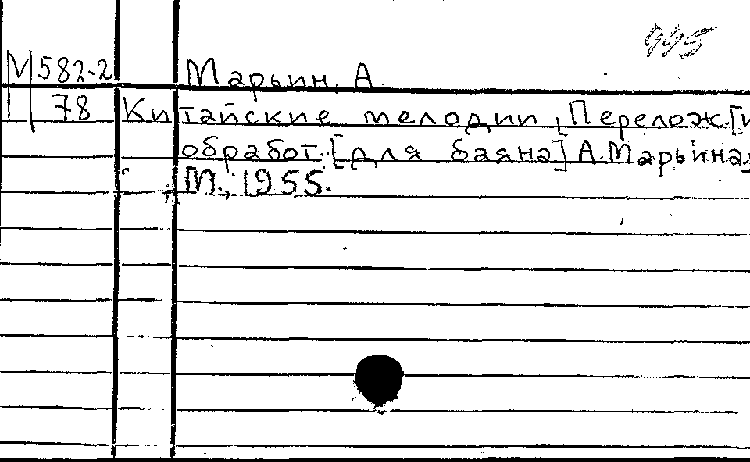 445
М 582-2 Марьин, А
78 Китайские мелодии, Перелож. [и
обработ. [для баяна] А. Марьина,
М., 1955.